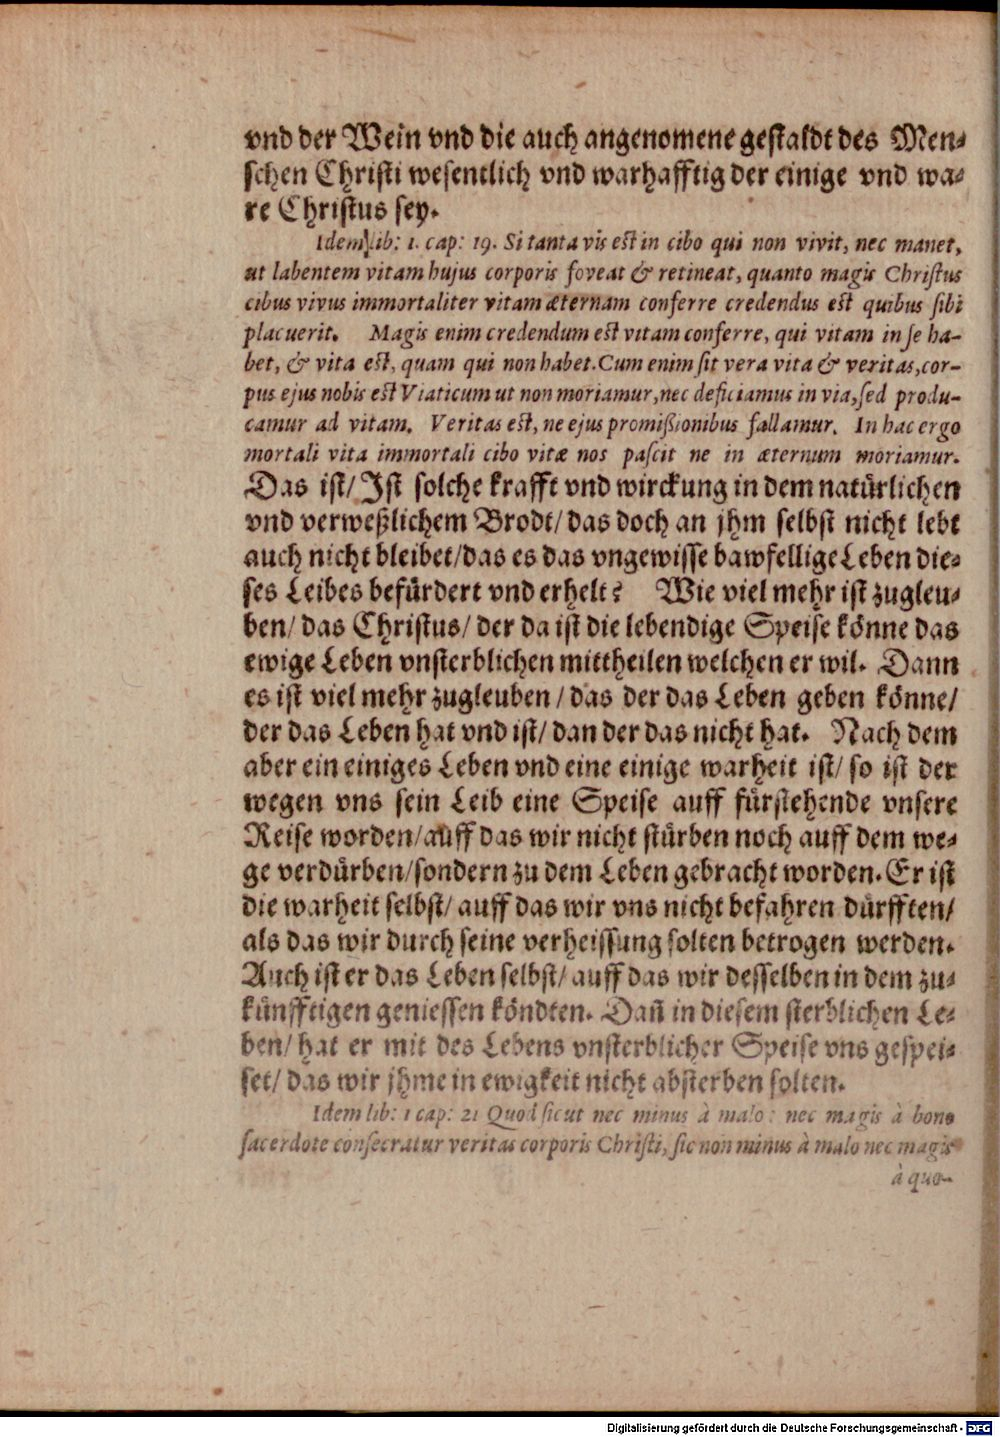 vnd der Wein vnd die auch angenomene gestaldt des Men-
schen Christi wesentlich vnd warhafftig der einige vnd wa-
re Christus sey.
Idem lib: 1. cap: 19. Si tanta vis est in cibo qui non vivit, nec manet,
ut labentem vitam hujus corporis foveat & retineat, quanto magis Christus
cibus vivus immortaliter vitam æternam conferre credendus est quibus sibi
placuerit. Magis enim credendum est vitam conferre, qui vitam in se ha-
bet, & vita est, quam qui non habet. Cum enim sit vera vita & veritas, cor-
pus ejus nobis est Viaticum ut non moriamur, nec deficiamus in via, sed produ-
camur ad vitam. Veritas est, ne ejus promißionibus fallamur. In hac ergo
mortali vita immortali cibo vitæ nos pascit ne in æternum moriamur.
Das ist/ Ist solche krafft vnd wirckung in dem natürlichen
vnd verweßlichem Brodt/ das doch an jhm selbst nicht lebt
auch nicht bleibet/ das es das vngewisse bawfellige Leben die-
ses Leibes befürdert vnd erhelt? Wie viel mehr ist zugleu-
ben/ das Christus/ der da ist die lebendige Speise könne das
ewige Leben vnsterblichen mittheilen welchen er wil. Dann
es ist viel mehr zugleuben/ das der das Leben geben könne/
der das Leben hat vnd ist/ dan der das nicht hat. Nach dem
aber ein einiges Leben vnd eine einige warheit ist/ so ist der
wegen vns sein Leib eine Speise auff fürstehende vnsere
Reise worden/ auff das wir nicht stürben noch auff dem we-
ge verdürben/ sondern zu dem Leben gebracht worden. Er ist
die warheit selbst/ auff das wir vns nicht befahren dürfften/
als das wir durch seine verheissung solten betrogen werden.
Auch ist er das Leben selbst/ auff das wir desselben in dem zu-
künfftigen geniessen köndten. Dañ in diesem sterblichen Le-
ben/ hat er mit des Lebens vnsterblicher Speise vns gespei-
set/ das wir jhme in ewigkeit nicht absterben solten.
Idem lib: 1 cap: 21 Quod sicut nec minus à malo: nec magis à bono
sacerdote consecratur veritas corporis Christi, sic non minus à malo nec magis
à quo-
Digitalisierung gefördert durch die Deutsche Forschungsgemeinschaft - DFG